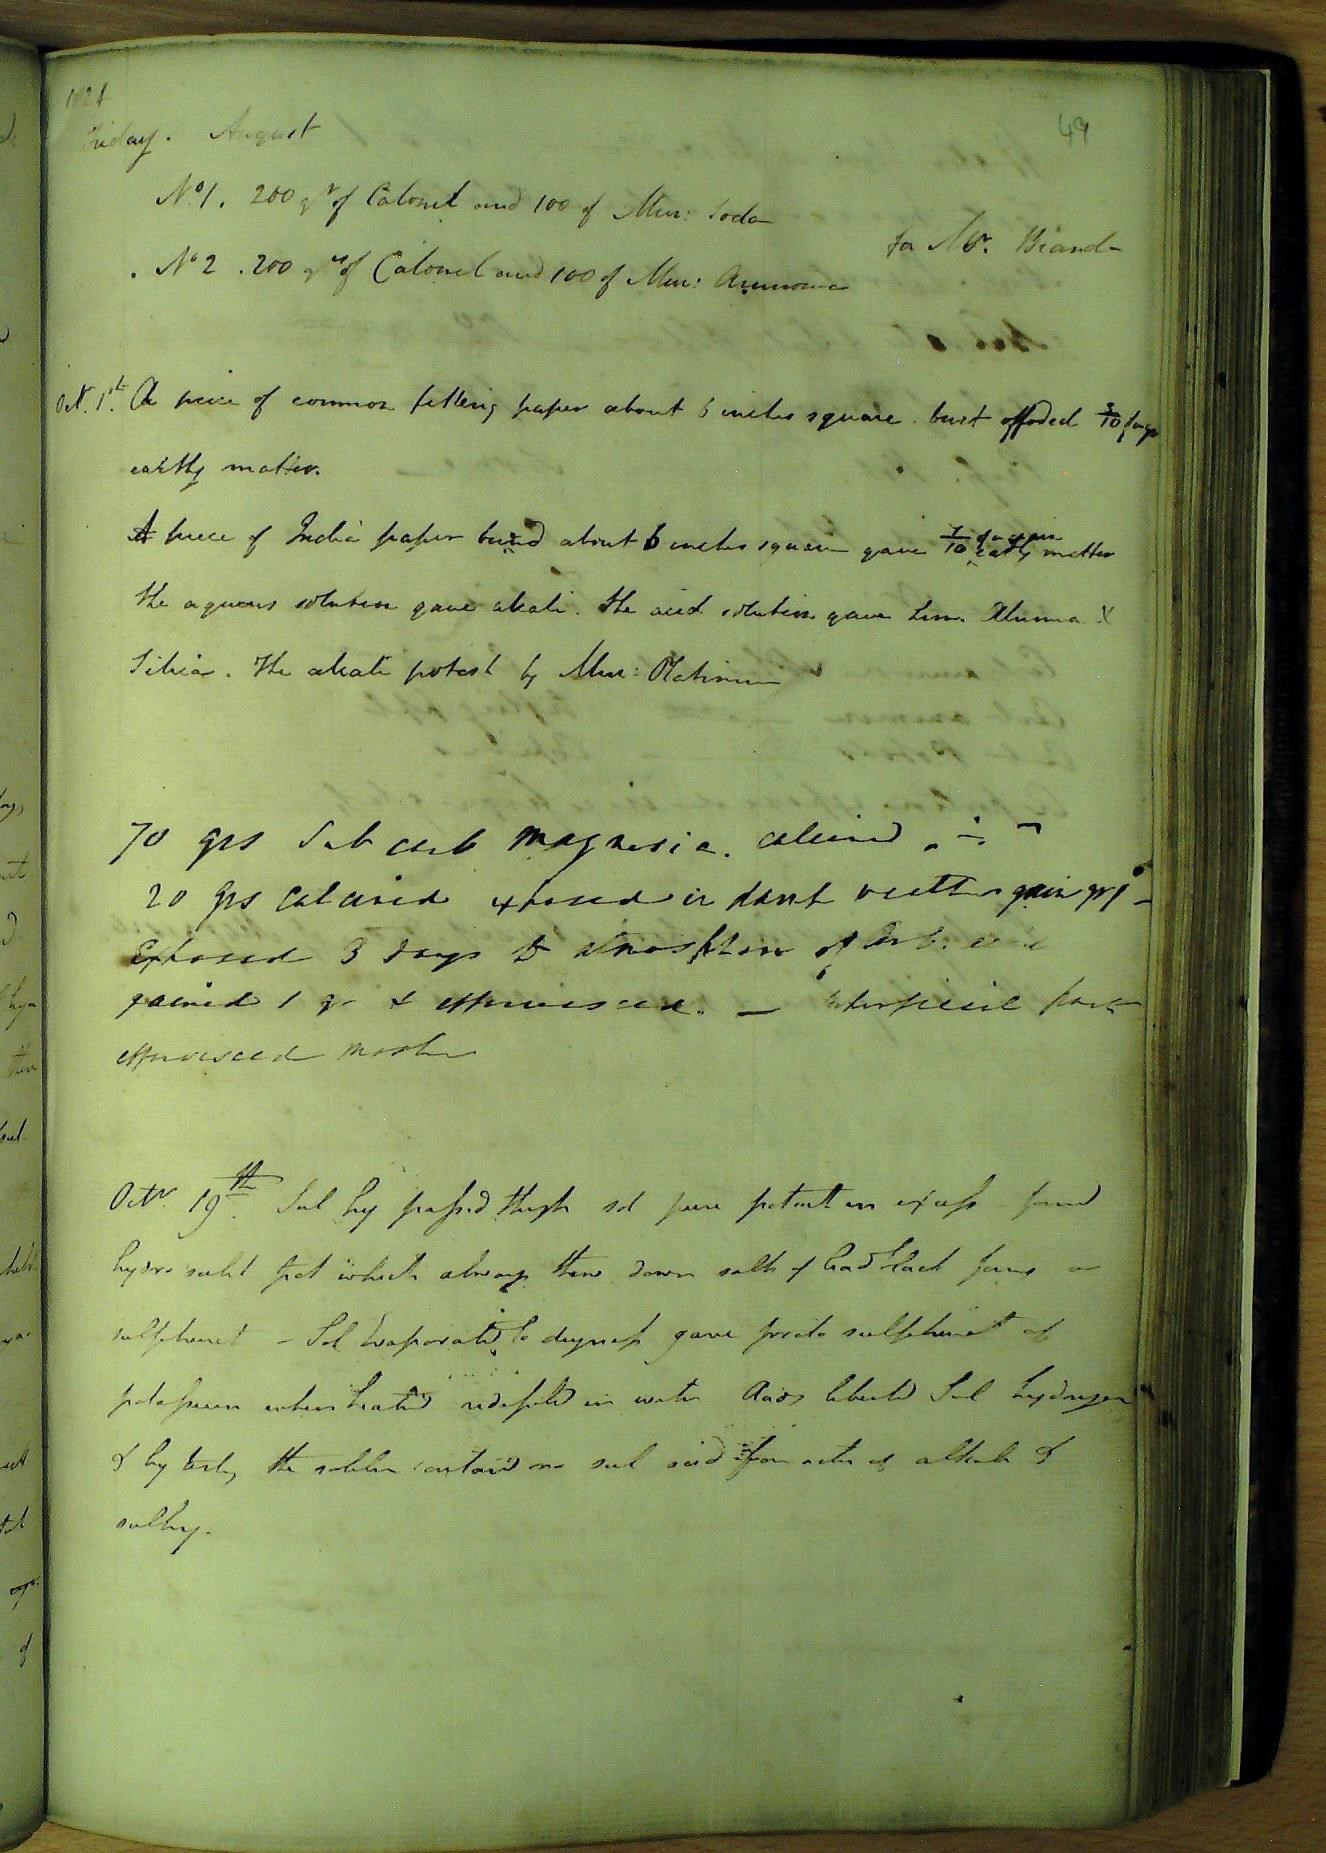 1821
49
Friday. August
No 1. 200 grs of Calomel and 100 of Mur: Soda
for Mr. Brande
No 2. 200 grs of Calomel and 100 of Mur: Ammonia
Oct. 1st. A piece of common filtering paper about 6 inches square burnt afforded /10 of a gr
earthy matter.
A piece of India paper burnd about 6 inches square gave /10 of a grain earthy matter
the aqueous solution gave alkali. the acid solution gave Lime Alumina &
Silica. The alkali potash by Mur: Platinum
70 grs Sub carb magnesia. calcined
20 grs calcined exposed in damp gain gr
Exposed 3 days to atmosphere of Carb:
gained 1 gr & effervesced. — Superficial part
effervesced most
Octr 19th. Sul hy passed thrgh sol pure potash in excess formd
hydro sulst pot which always threw down salts of lead black forms a
sulphuret - Sol Evaporated to dryness gave proto sulphuret of
potassium when heated redissolvd in water Acids liberated Sul hydrogen
& by tests the solution contained no sul acid from actn of alkali &
sulhy.